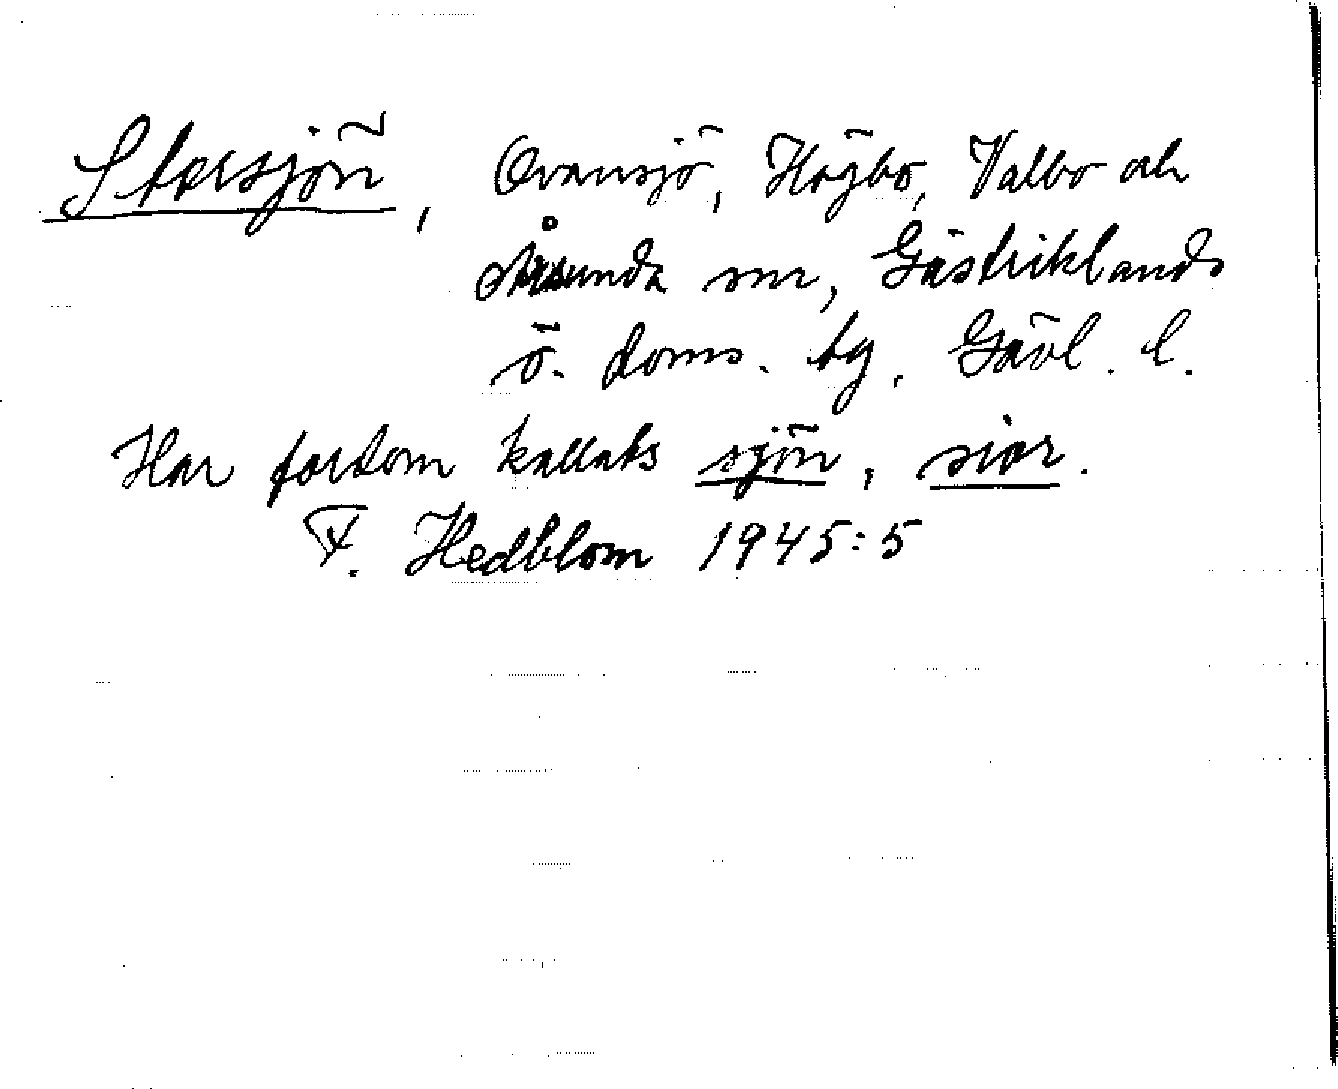 Storsjön, Ovansjö, Högbo, Valbo och
Årsunda snr, Gästriklands
ö. doms. tg, Gävl. l.
Har fordom kallats sjön, sior.
F. Hedblom 1945:5